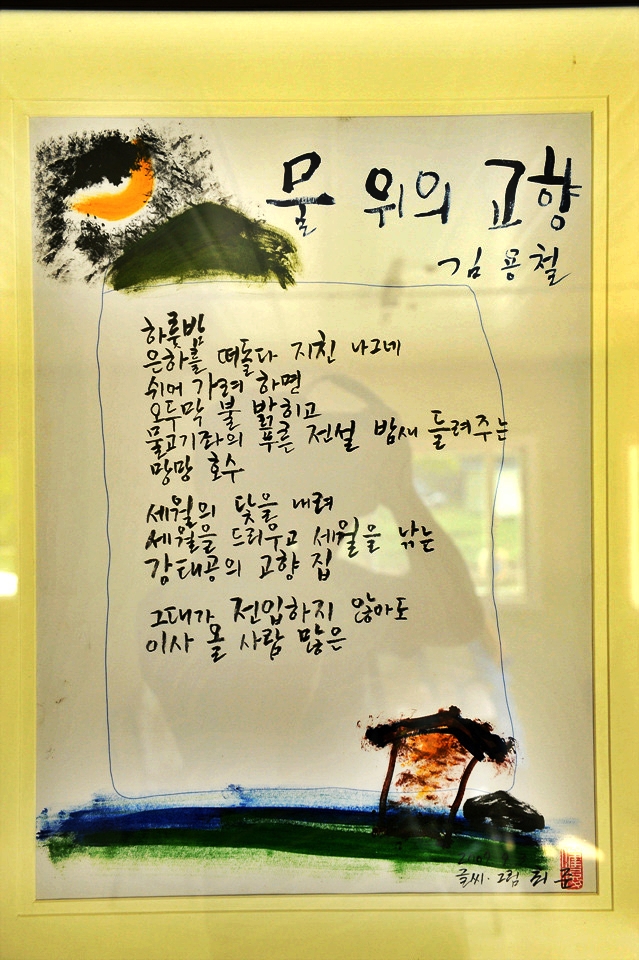 물 위의 고향
김용철
하룻밤
은하를 떠돌다 지친 나그네
쉬어 가려 하면
오두막 불 밝히고
물고기좌의 푸른 전설 밤새 들려주는
망망 호수
세월의 닻을 내려
세월을 드리우고 세월을 낚는
강태공의 고향 집
그대가 전입하지 않아도
이사 올 사람 많은
글씨·그림 최 준